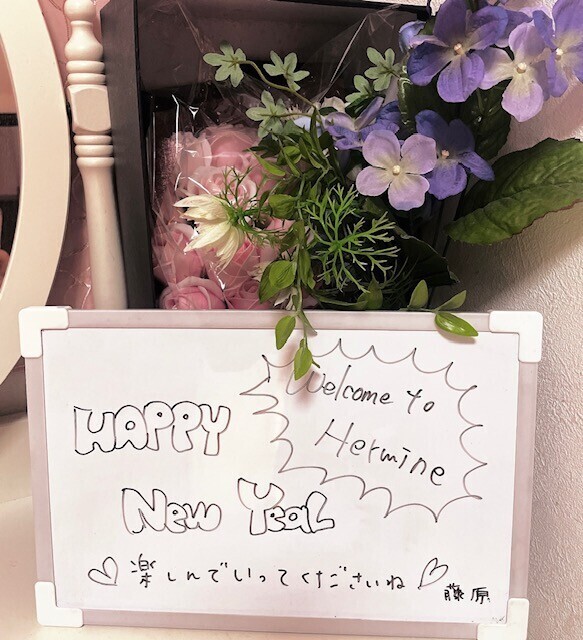 Welcome to
Hermine
HAPPY
New Year
♡楽しんでいってくださいね♡
藤原